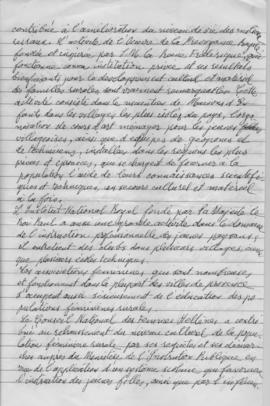 contribué à l'amélioration du niveau de vie des
ruraux. L'entente de l'Oeuvre de la Prévoyance Royale
fondée et inspirée par S.M. la Reine Frédérique, qui
fonctionne comme institution privée et ses résultats
bienfaisants pour le développement culturel et matériel
de familles rurales sont vraiment remarquables. Cette
activité consiste dans la création de Maisons d'En-
fants dans les villages les plus isolés du pays,
de cours d'art ménager pour les jeunes
villageoises, ainsi que d'équipes
de techniciens, installées dans les régions les plus
et éprouvées, qui se chargent de fournir à la
population l'aide de leurs connaissances scientifi-
ques et techniques, en secours culturel et matériel
à la fois.
L'Institut National Royal fondé par sa Majesté le
Roi Paul a une activité dans le domaine
de l'instruction professionnelle des jeunes paysans,
et entretient des clubs dans plusieurs villages, ainsi
que plusieurs écoles techniques.
Les associations féminines, qui sont nombreuses,
et fonctionnent dans la plupart des villes de province
s'occupent aussi sérieusement de l'éducation des po-
pulations féminines rurales.
Le Conseil National des Femmes Hellènes a contri-
bué au rehaussement du niveau culturel de la popu-
lation féminine rurale, par ses
auprès du Ministère de l'Instruction Publique, en
vue de l'application d'un système scolaire qui favorise
l'instruction des jeunes filles, ainsi que par